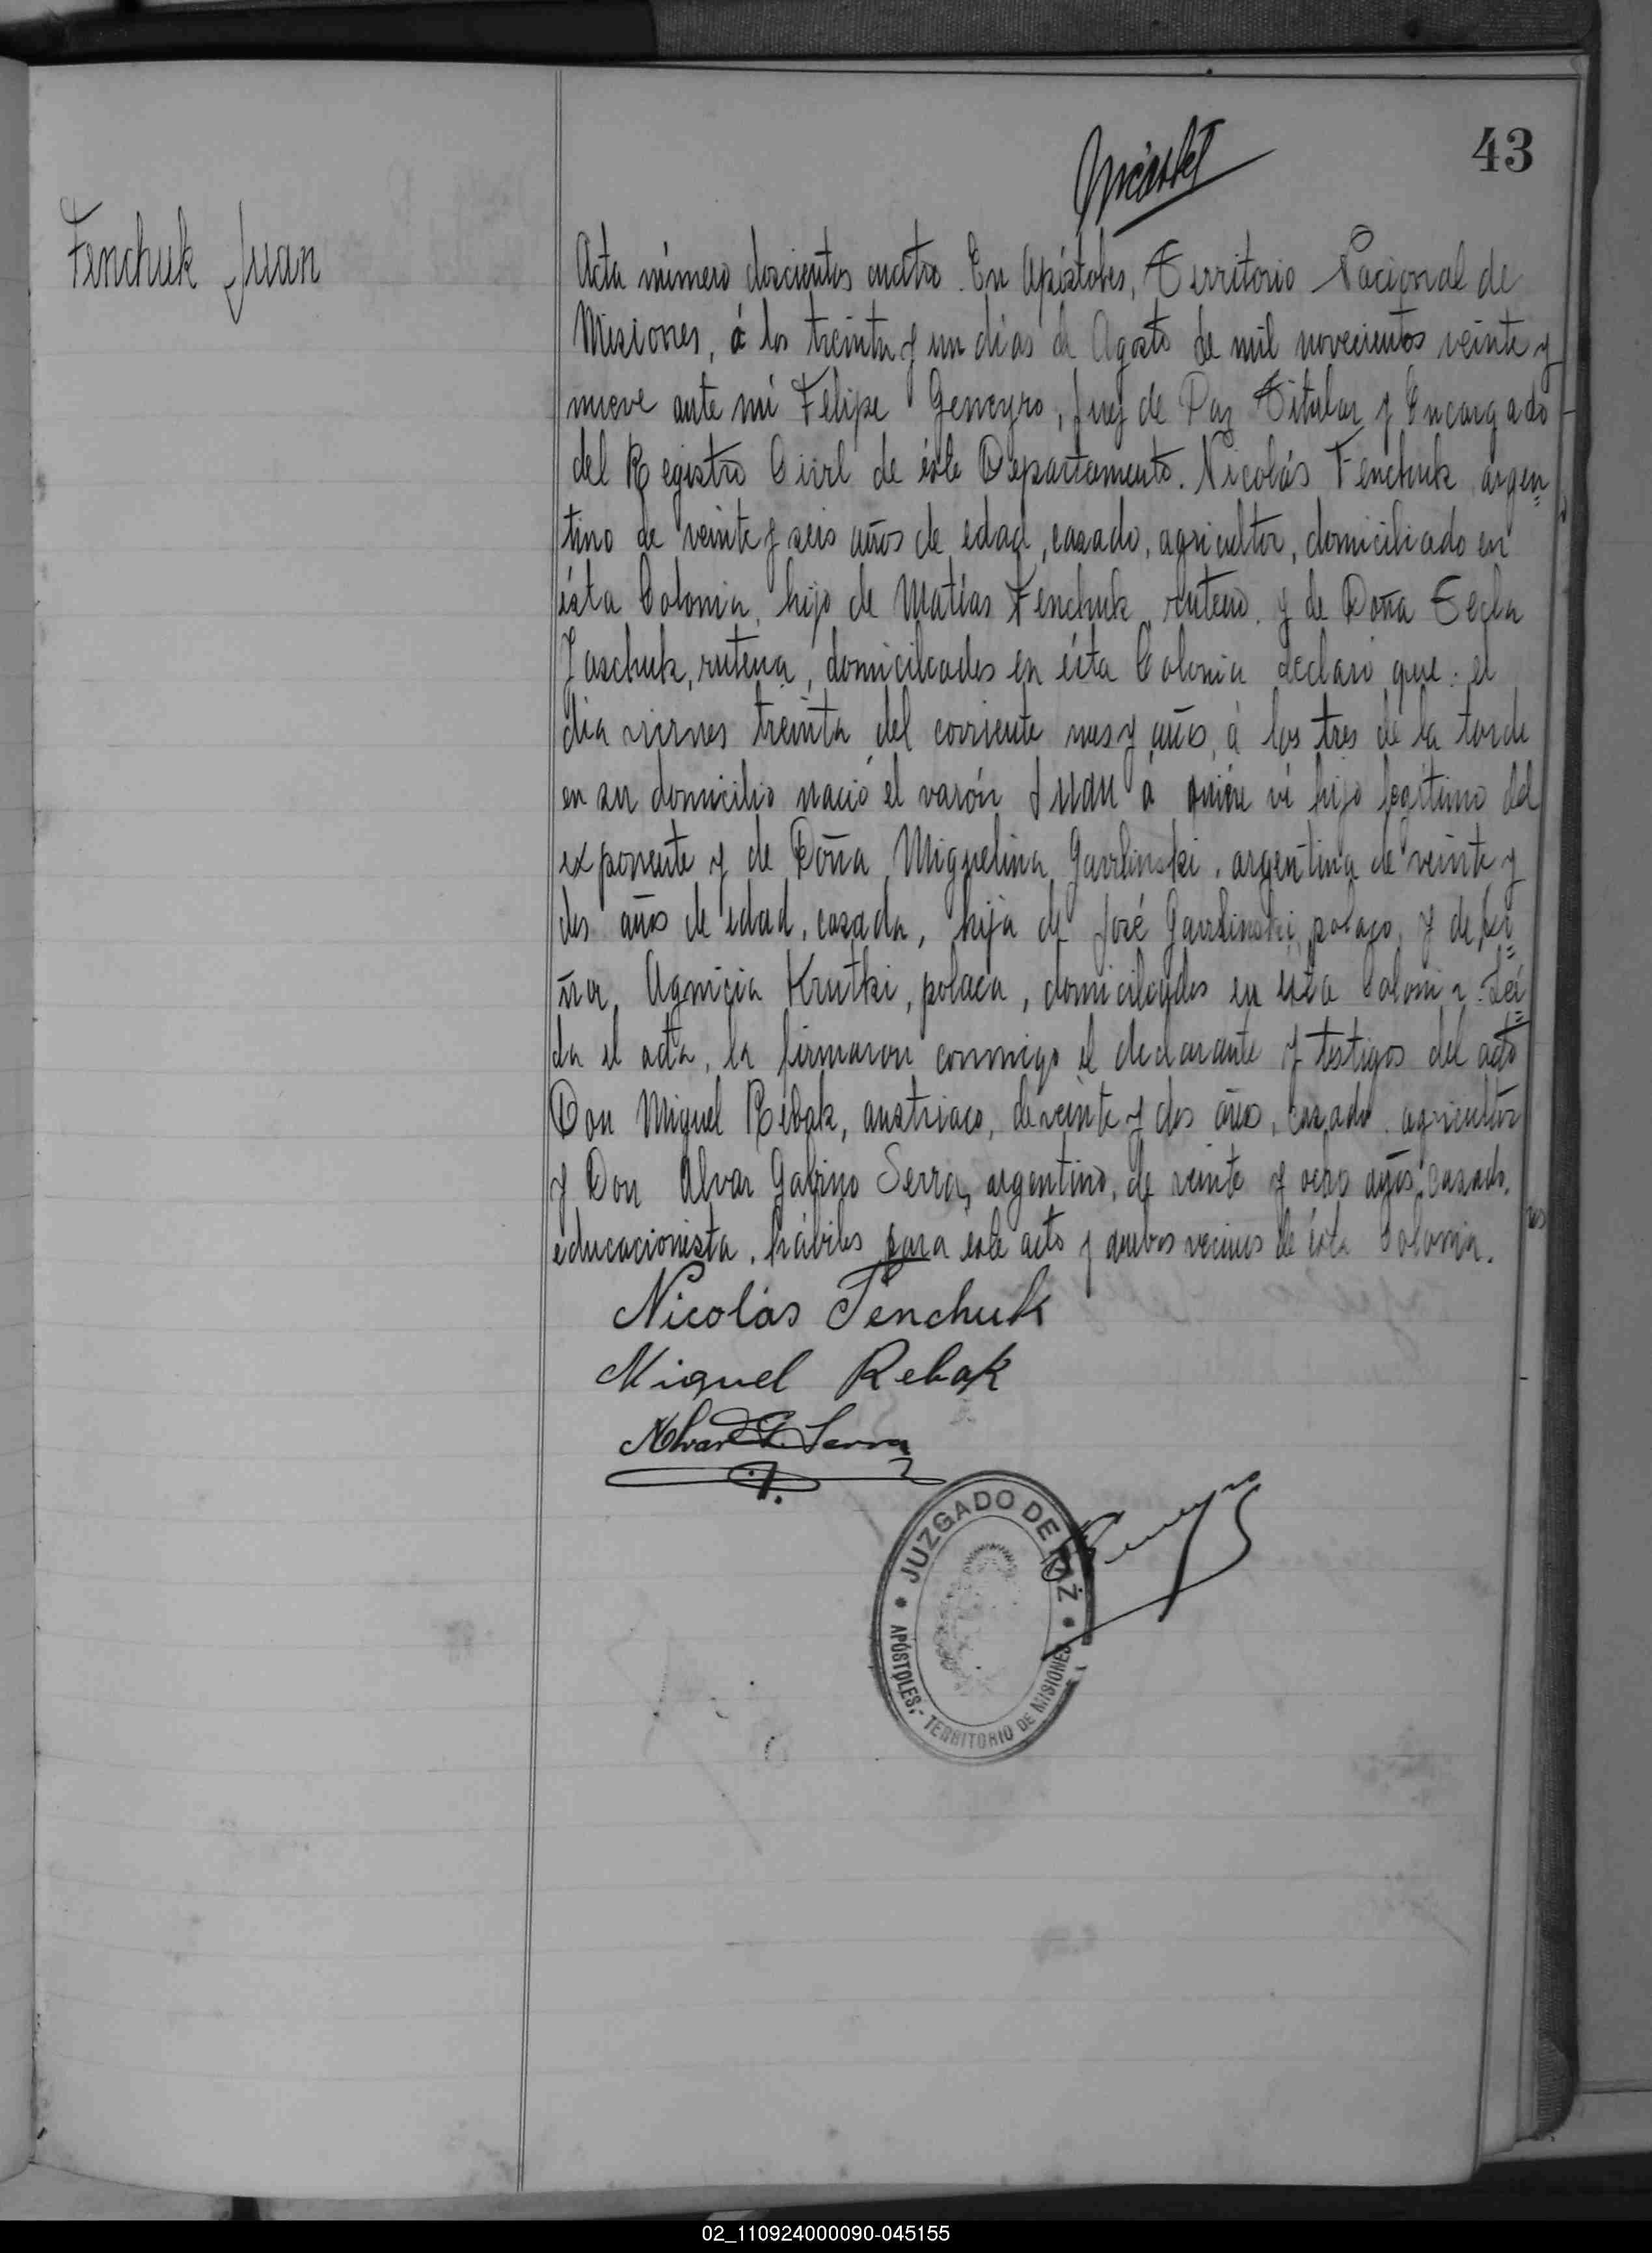 43
Fenchuk Juan
Acta número doscientos cuatro. En Apóstoles, Territorio Nacional de
Misiones, á los treinta y un dias de Agosto de mil novecientos veinte y
nueve ante mí Felipe Geneyro, Juez de Paz Titular y Encargado
del Registro Civil de éste Departamento. Nicolás Fenchuk argen=
tino de veinte y seis años de edad, casado, agricultor, domiciliado en
ésta Colonia, hijo de Matías Fenchuk, ruteno, y de Doña Tecla
Jaschuk, rutena, domiciliados en ésta Colonia declaró que: el
dia viernes treinta del corriente mes y año, á las tres de la tarde
en su domicilio nació el varón Juan á quién ví hijo legítimo del
exponente y de Doña Miguelina Gavrlinski, argentina de veinte y
dos años de edad, casada, hija de José Gavrlinski, polaco, y de Do=
ña Agnicia Krutki, polaca, domiciliados en ésta Colonia. Leí=
da el acta, la firmaron conmigo el declarante y testigos del acto
Don Miguel Rebak, austriaco, de veinte y dos años, casado, agricultor
y Don Alvar Gabino Serra, argentino, de veinte y ocho años, casado,
educacionista, hábiles para éste acto y ambos vecinos de ésta Colonia.
Nicolás Fenchuk
Miguel Rebak
Alvar G. Serra
Geneyro
JUZGADO DE PAZ
APÓSTOLES,- TERRITORIO DE MISIONES
02_110924000090-045155